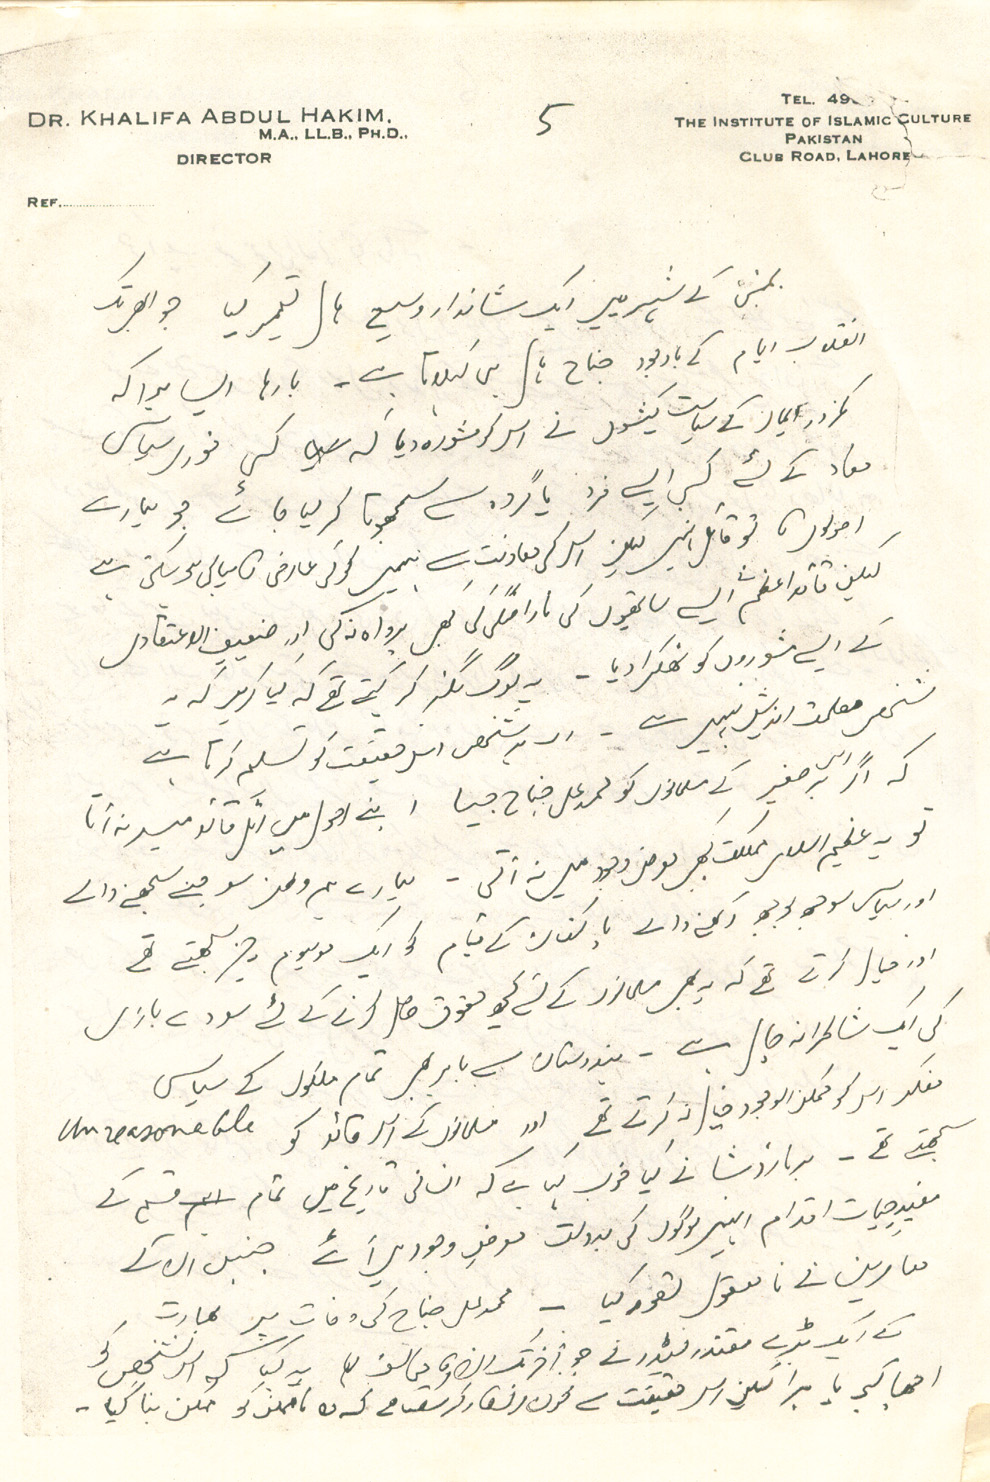 DR. KHALIFA ABDUL HAKIM,
M.A., LL.B., PH.D.,
DIRECTOR
REF.
5
TEL. 49
THE INSTITUTE OF ISLAMIC CULTURE
PAKISTAN
CLUB ROAD, LAHORE
بمبئی کے شہر میں ایک شاندار وسیع ہال تعمیر کیا جو آج تک
انقلاب ایام کے باوجود جناح ہال ہی کہلاتا ہے۔ بارہا ایسا ہوا کہ
کمزور ایمان کے سیاست کیشوں نے اس کو مشورہ دیا کہ کسی فوری سیاسی
مفاد کے لئے کسی ایسے فرد یا گروہ سے سمجھوتا کر لیا جائے جو ہمارے
اصولوں کا تو قائل نہیں لیکن اس کی معاونت سے ہمیں کوئی عارضی کامیابی ہو سکتی ہے
لیکن قائد اعظم نے ایسے ساتھیوں کی ناراضگی کی بھی پرواہ نہ کی اور ضعیف الاعتقادوں
کے ایسے مشوروں کو ٹھکرا دیا۔ یہ لوگ کہتے تھے کہ کیا کریں کہ یہ
شخص مصلحت اندیش نہیں ہے۔ اب ہر شخص اس حقیقت کو تسلیم کرتا ہے
کہ اگر اس برصغیر کے مسلمانوں کو محمد علی جناح جیسا اپنے اصول میں اٹل قائد میسر نہ آتا
تو یہ عظیم اسلامی مملکت بھی معرض وجود میں نہ آتی۔ ہمارے ہم وطن سوچنے سمجھنے والے
اور سیاسی سوجھ بوجھ رکھنے والے پاکستان کے قیام کو ایک موہوم چیز سمجھتے تھے
اور خیال کرتے تھے کہ یہ بھی مسلمانوں کے لئے کچھ حقوق حاصل کرنے کے لئے سودے بازی
کی ایک شاطرانہ چال ہے۔ ہندوستان سے باہر بھی تمام ملکوں کے سیاسی
مفکر اس کو ممکن الوجود خیال نہ کرتے تھے اور مسلمانوں کے اس قائد کو Unreasonable
سمجھتے تھے۔ برنارڈ شا نے کیا خوب کہا ہے کہ انسانی تاریخ میں تمام قسم کے
مفید حیات اقدام انہیں لوگوں کی بدولت معرض وجود میں آئے جنہیں ان کے
معاصرین نے نامعقول تصور کیا۔ محمد علی جناح کی وفات پر بھارت
کے ایک بڑے مقتدر لیڈر نے جو آخر تک ان کا مخالف تھا یہ کہا کہ اس شخص کو
اچھا کہو یا برا لیکن اس حقیقت سے کون انکار کر سکتا ہے کہ وہ ناممکن کو ممکن بنا گیا۔